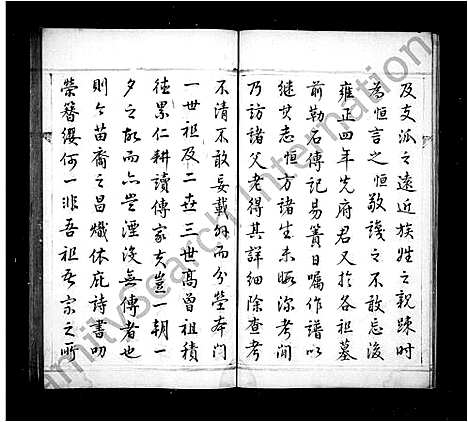 及支派之遠近族姓之親疎時
為恒言之恒敬識之不敢忘後
雍正四年先府君又於各祖墓
前勒石傳記易簀日囑作譜以
継其志恒方諸生未暇深考間
乃訪諸父老得其詳細除查考
不清不敢妄載外而分塋本門
一世祖及二世三世高曾祖積
徳累仁耕讀傳家夫豈一朝一
夕之故而亦豈湮沒無傳者也
則今苗裔之昌熾体庇詩書叨
榮簪纓何一非吾祖吾宗之所
FamilySearch International